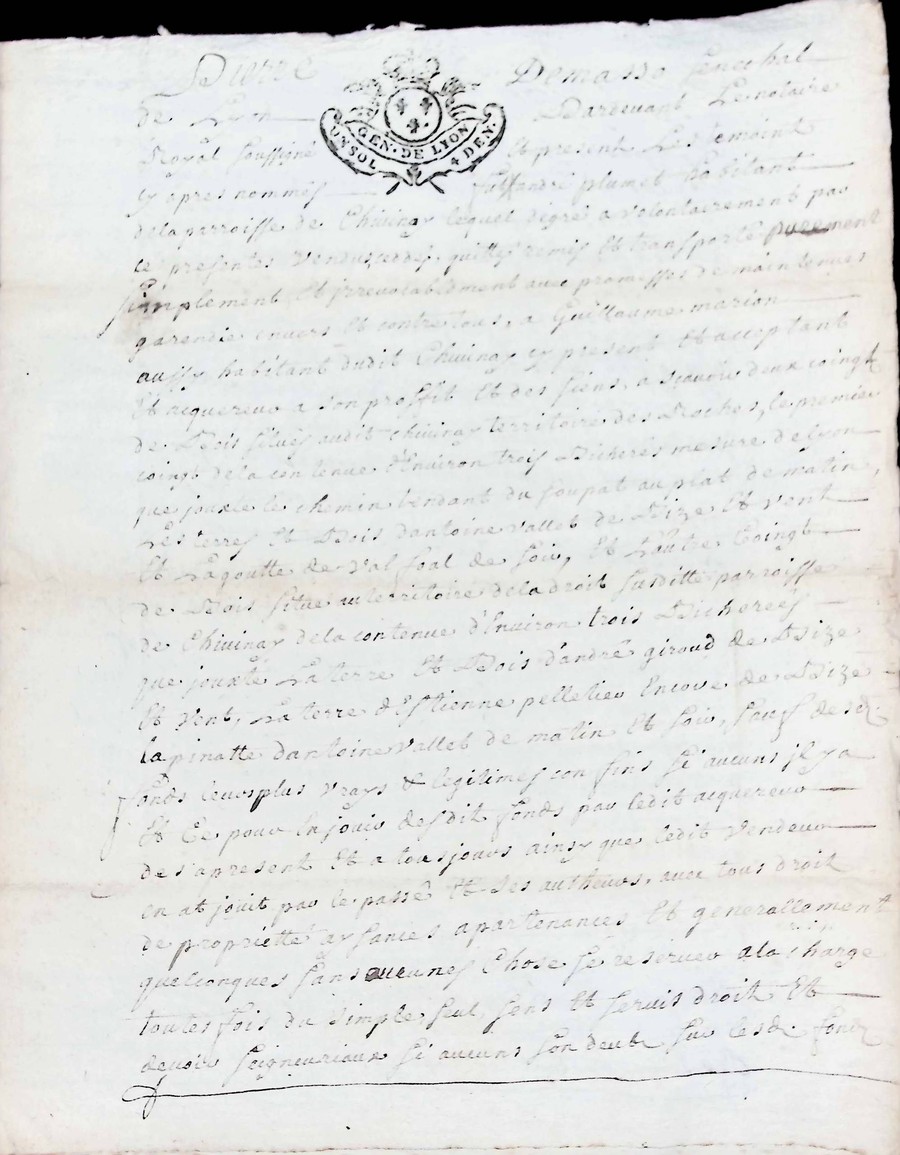 Pierre Demasso senechal
de Lyon Pardevant Le notaire
GEN. DE LYON
UN SOL 4 DEN.
Royal soussigné Et present Les temoins
cy apres nommés fut andré plumet habitant
de la parroisse de Chivinay lequel degré a volontairement par
ce presentes vendu, ceddé, quitté, remis Et transporté purement
simplement Et irrevocablement avec promesses de maintenues
garendie envers Et contre tous, a Guillaume marion
aussy habitant dudit Chivinay cy present Et acceptant
Et aquereur a son proffit Et des siens, a scavoir deux coingt
de Bois situés audit chivinay territoire des Roches, le premier
coingt de la contenue d'Environ trois Bicherés mesure de Lyon
que jouxte le chemin tendant du soupat au plat de matin,
Les terres Et Bois dantoine vallet de Bize Et vent
Et La goutte de Val foal de soir, Et L'autre Coingt
de Bois situé au territoire de la droit susditte parroisse
de Chivinay de la contenue d'Environ trois Bicherées
que jouxte La terre Et Bois d'andré giroud de Bize
Et vent, La terre d'Estienne pelletier Encore de Bize
la pinatte dantoine vallet de matin Et soir, sauf desd.
fonds leurs plus vrays & legitimes confins si aucuns jl y a
Et Ce pour En jouir desdit fonds par ledit acquereur
des apresent Et a tousjours ainsy que ledit vendeur
en at jouit par le passé Et ses autheurs, avec tous droit
de proprietté aysances apartenances Et generallement
quelconques sans aucunes Chose se reserver a la charge
toutes fois du simple seul, sens Et servis droit Et
devoir seigneuriaux si aucuns son deubt sur lesd. fonds